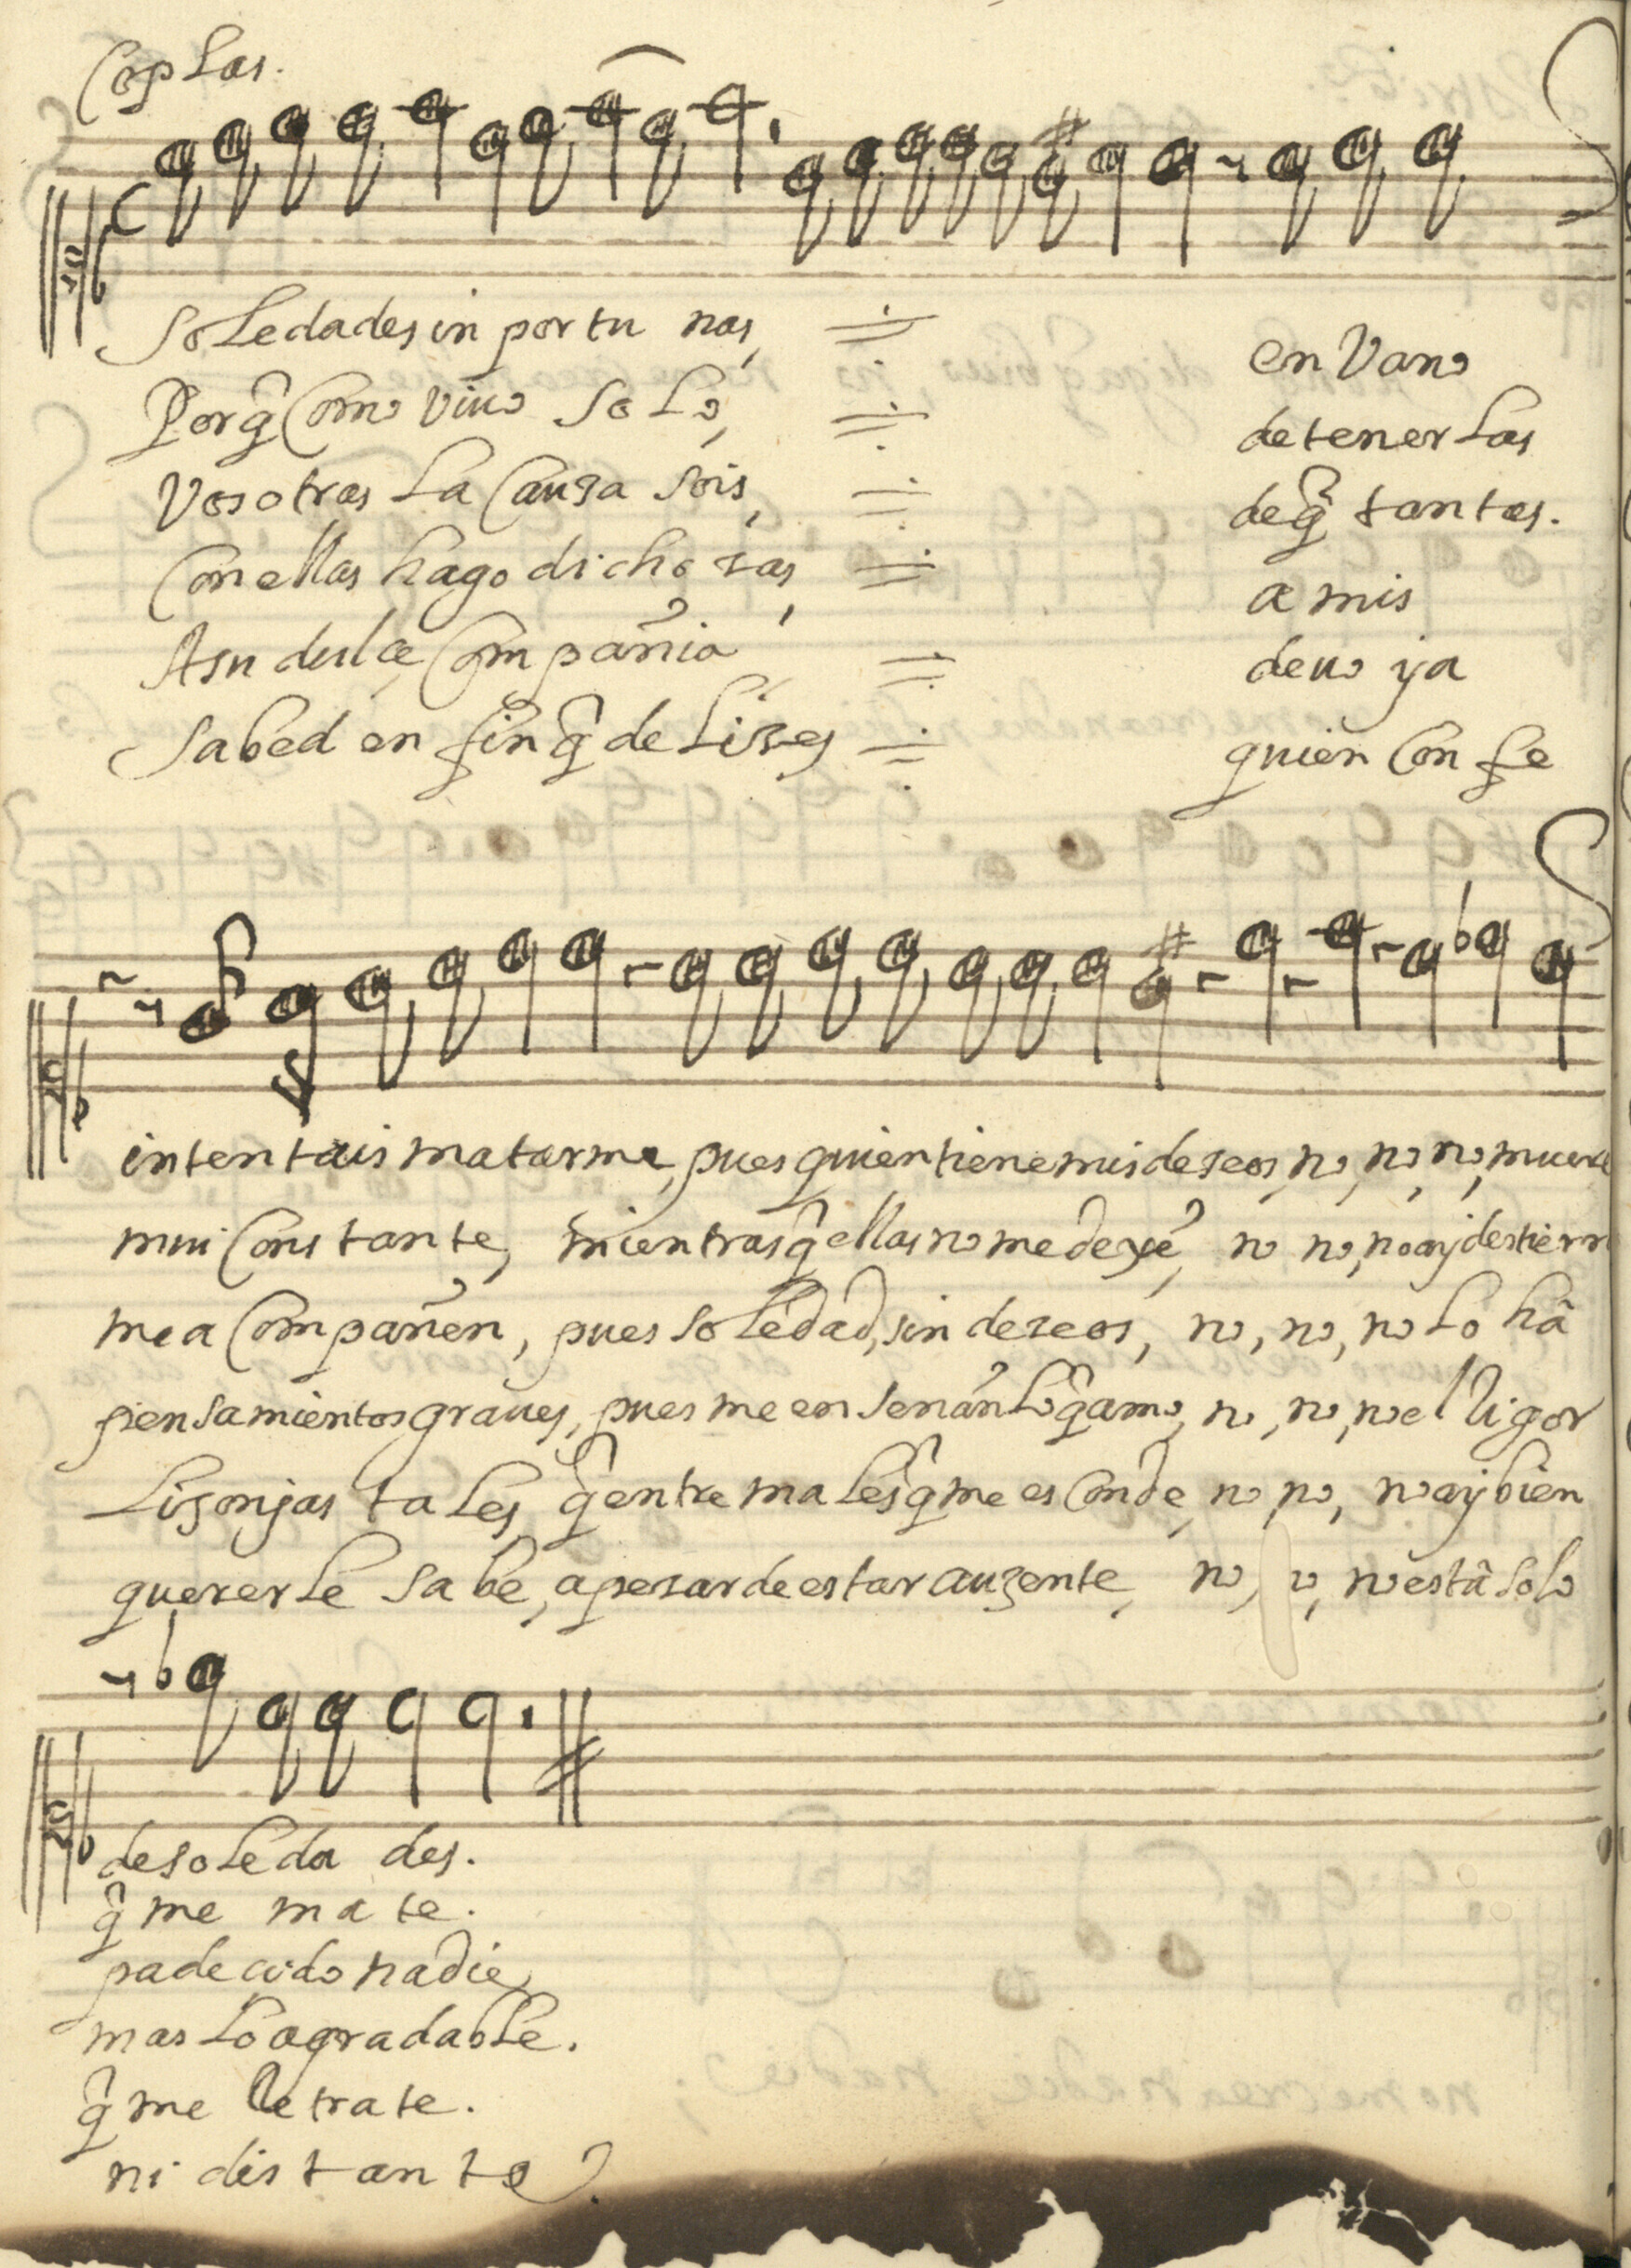 Coplas.
Soledades in portu nas,
Porq̂ Como viuo Solo,
Vosotras La Causa Sois,
Con ellas hago dichosas,
A su dulce Compañia
Sabed en fin q̂ de Lizes
en Vano
detener las
deq̂ tantas.
a mis
deuo ya
quien Con fe
intentais matarme, pues quien tiene mis deseos, no, no, no, muere
mui Constante, mientras q̂ ellas no me dexẽ, no no, no ay destierr
me a Compañen, pues Soledad, sin deseos, no, no, no Lo hâ
pensamientos graues, pues me enseñan Lo q̂ amo, no, no, no el Rigor
Lisonjas ta Les, q̂ entre maLes q̂ me esConde, no no, no ay bien
quererLe Sabe, a pesar de estar auzente, no, no, no està Solo
de soLeda des.
q̂ me ma te.
padecido nadie,
mas Lo agradabLe.
q̂ me Retrate.
ni dis tan te